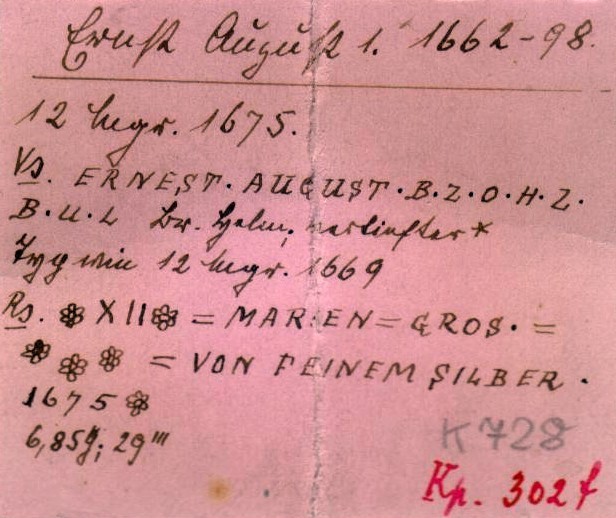 Ernst August 1. 1662-98.
12 mgr. 1675.
Vs. ERNEST · AUGUST · B · Z · O · H · Z ·
B · U · L Br. Helm, vertiefter *
Typ wie 12 mgr. 1669
Rs. ❀ XII ❀ = MARIEN = GROS · =
❀ ❀ ❀ = VON FEINEM SILBER ·
1675 ❀
6,85g; 29'''
K 728
Kp. 302 f